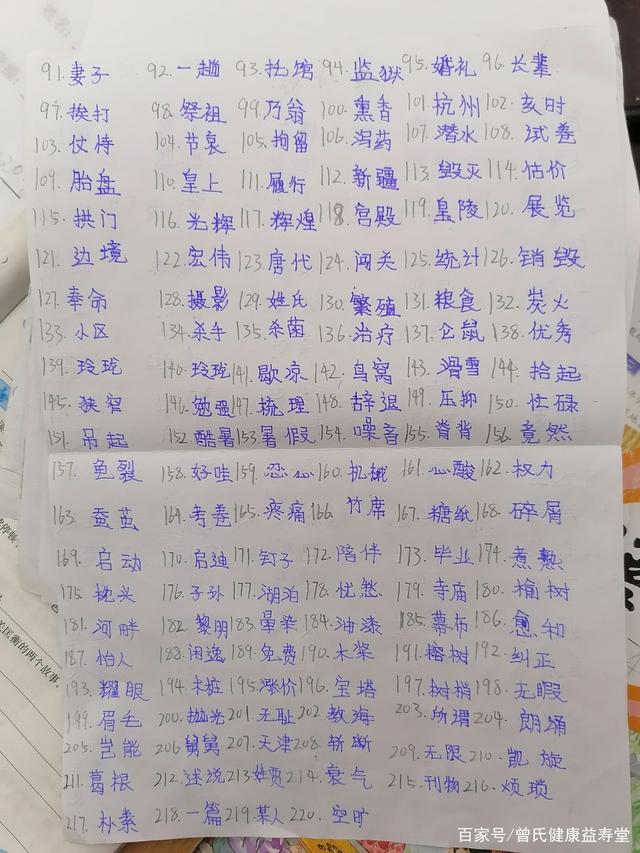 91. 妻子 92. 一趟 93. 托馆 94. 监狱 95. 婚礼 96. 长辈
97. 挨打 98. 祭祖 99. 乃翁 100. 熏香 101. 杭州 102. 亥时
103. 仗恃 104. 节哀 105. 拘留 106. 泻药 107. 潜水 108. 试卷
109. 胎盘 110. 皇上 111. 履行 112. 新疆 113. 毁灭 114. 估价
115. 拱门 116. 光辉 117. 辉煌 118. 宫殿 119. 皇陵 120. 展览
121. 边境 122. 宏伟 123. 唐代 124. 闯关 125. 统计 126. 销毁
127. 奉命 128. 摄影 129. 姓氏 130. 繁殖 131. 粮食 132. 炭火
133. 小区 134. 杀手 135. 杀菌 136. 治疗 137. 仓鼠 138. 优秀
139. 玲珑 140. 玲珑 141. 歇凉 142. 鸟窝 143. 滑雪 144. 拾起
145. 狭窄 146. 勉强 147. 梳理 148. 辞退 149. 压抑 150. 忙碌
151. 吊起 152. 酷暑 153 暑假 154. 噪音 155. 脊背 156. 竟然
157. 龟裂 158. 好哇 159. 恐心 160. 机械 161. 心酸 162. 权力
163. 蚕茧 164. 考卷 165. 疼痛 166. 竹席 167. 糖纸 168. 碎屑
169. 启动 170. 启迪 171. 钉子 172. 陪伴 173. 毕业 174. 煮熟
175. 枕头 176. 子孙 177. 湖泊 178. 忧愁 179. 寺庙 180. 榆树
181. 河畔 182. 黎明 183. 晕染 184. 油漆 185. 幕布 186. 愈和
187. 怡人 188. 闲逸 189. 免费 190. 木桨 191. 榕树 192. 纠正
193. 耀眼 194. 木桩 195. 涨价 196. 宝塔 197. 树梢 198. 无暇
199. 眉毛 200. 抛光 201. 无耻 202. 教诲 203. 所谓 204. 朗诵
205. 岂能 206 舅舅 207. 天津 208. 斩断 209. 无限 210. 凯旋
211. 葛根 212. 述说 213 214. 衰气 215. 刊物 216. 烦琐
217. 朴素 218. 一篇 219. 某人 220. 空旷
匡衡的两个故事
百家号/曾氏健康益寿堂